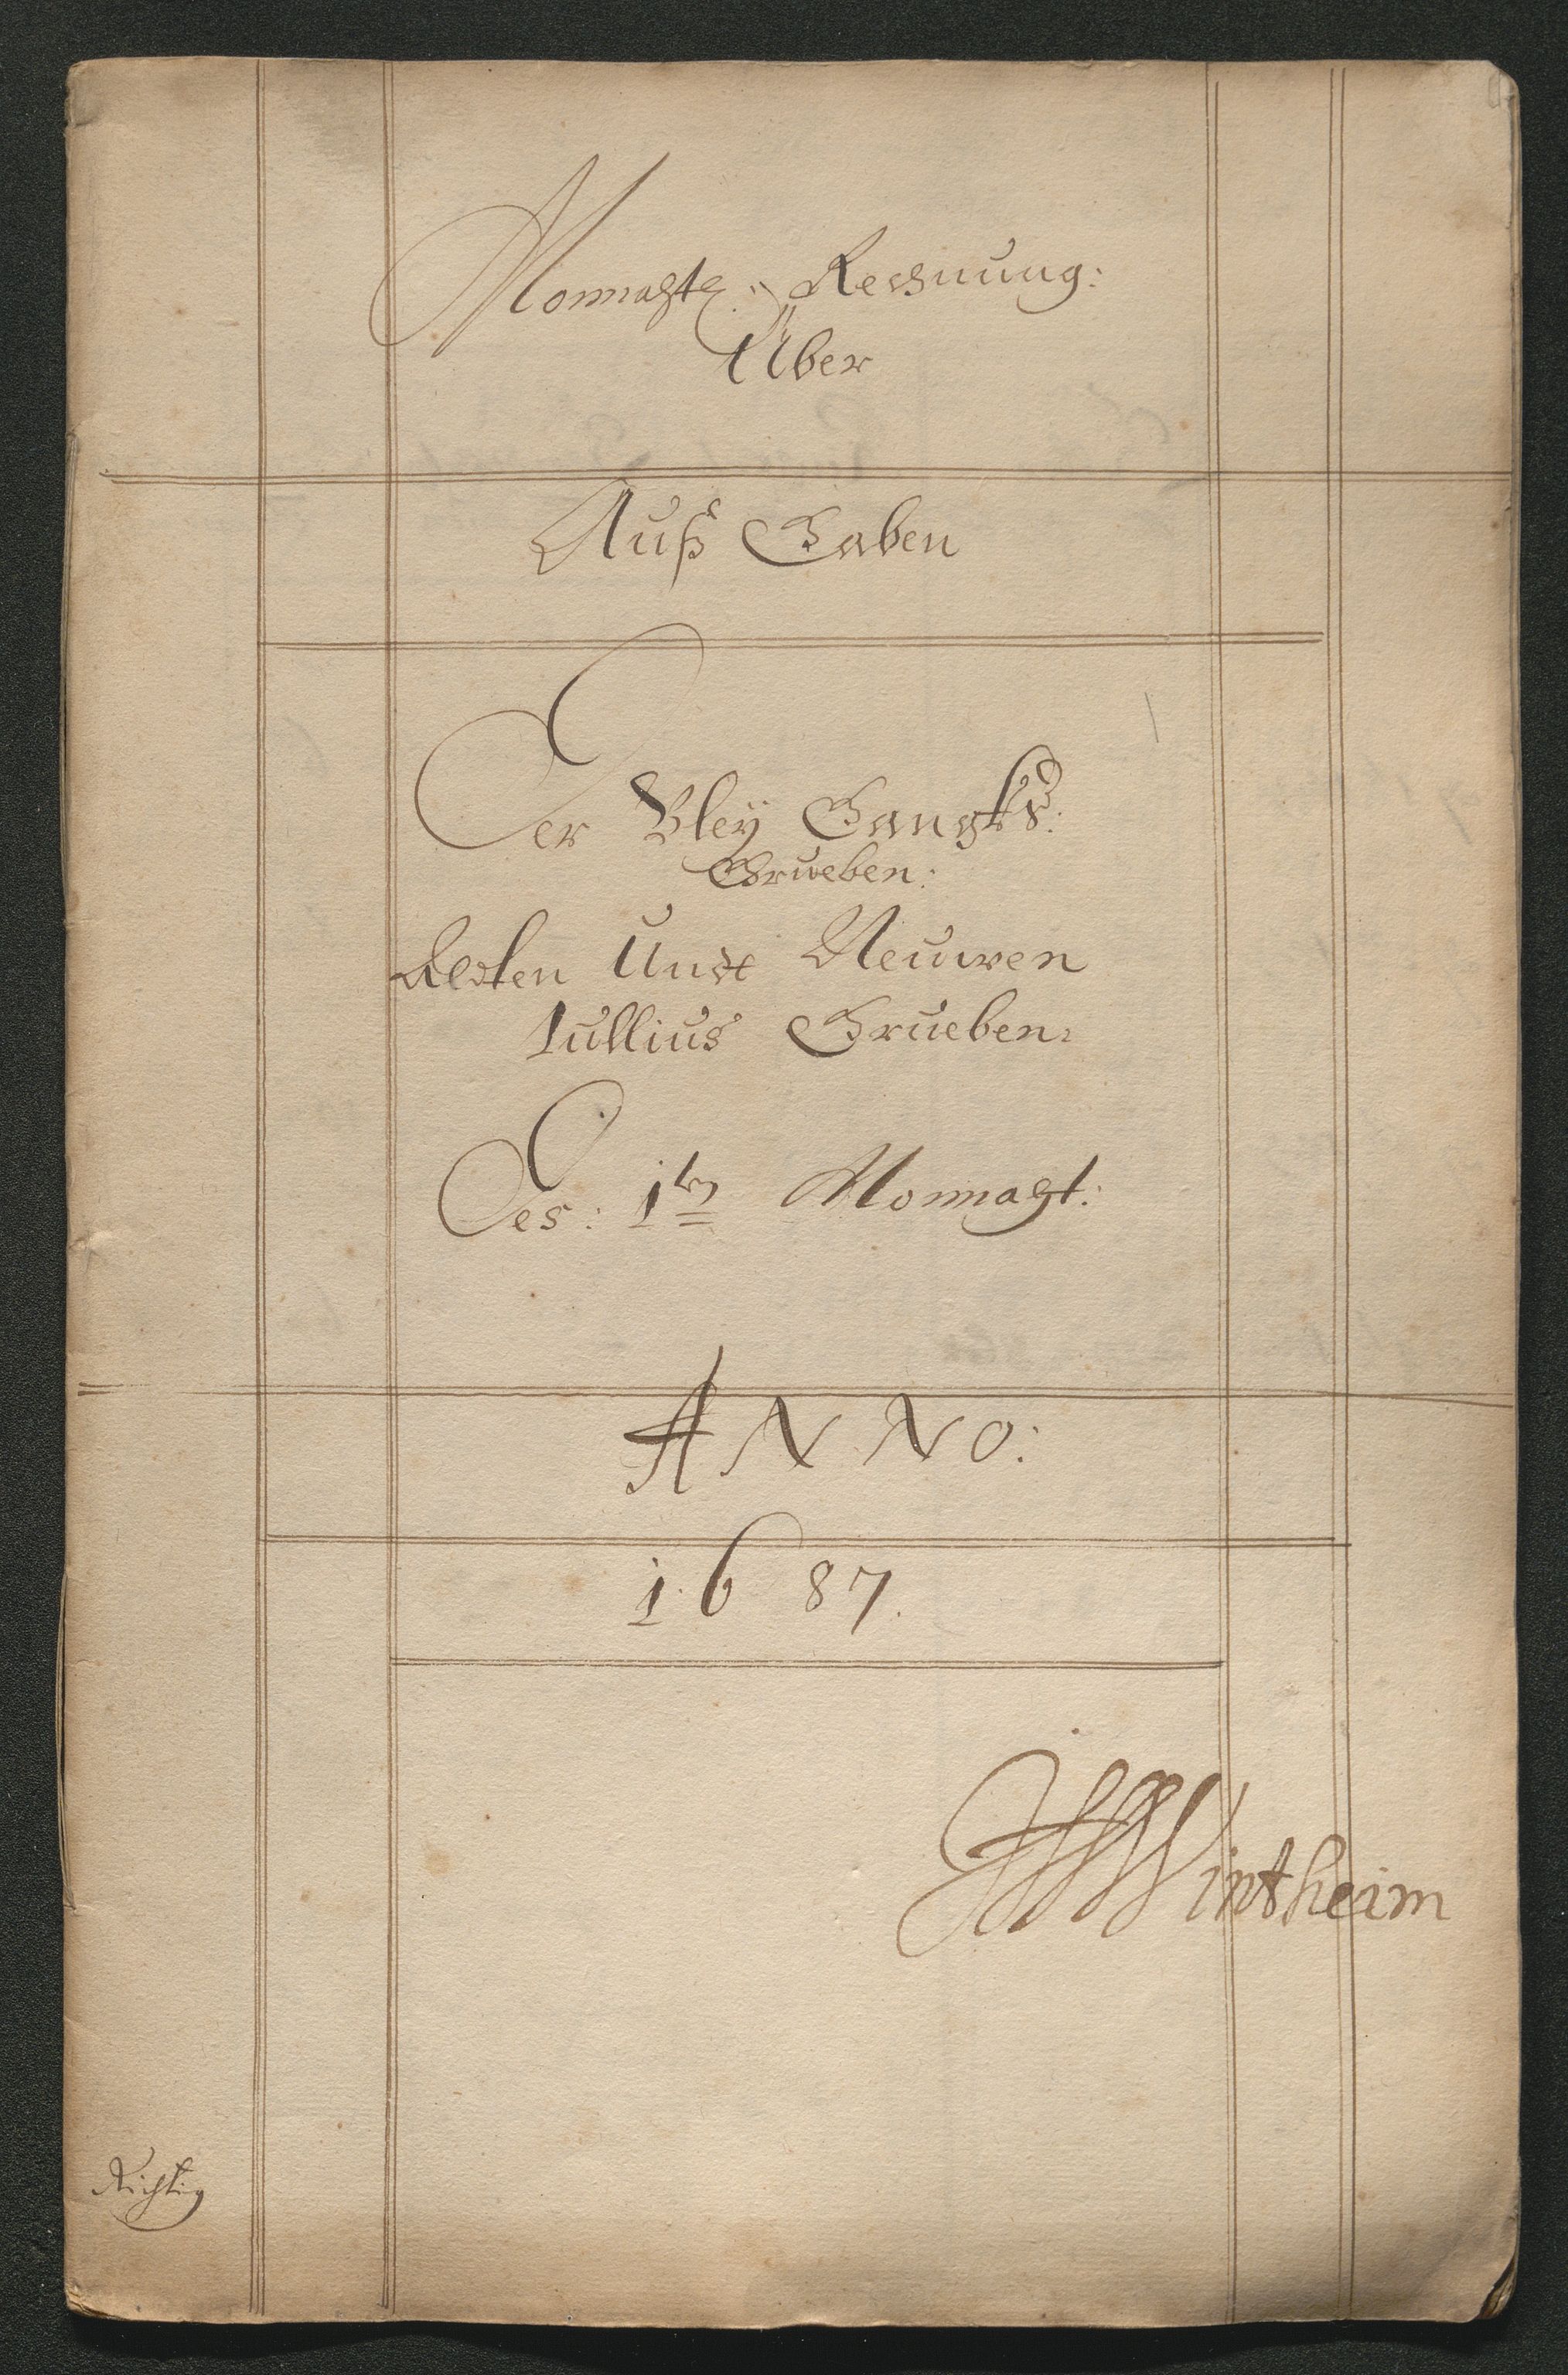 Monnahts Rechnung:
Über
Auß Gaben
Der Bley Gangks:
Grueben:
Alten Undt Neuwen
Jullius Grueben:
Des: 1ten Monnaht:
ANNO:
1687.
Wintheim
Richtig